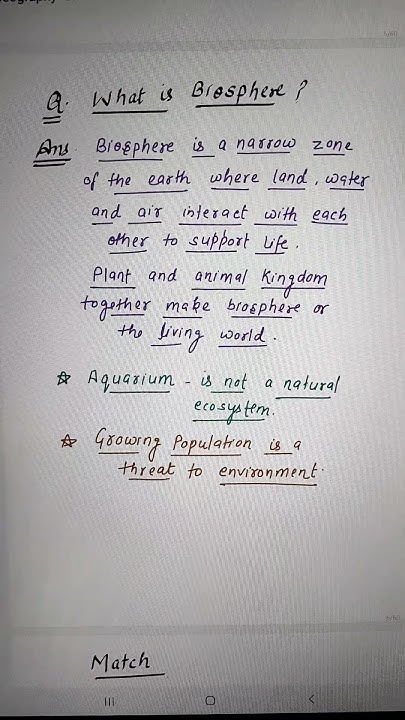 5/60
Q. What is Biosphere?
Ans. Biosphere is a narrow zone
of the earth where land, water
and air interact with each
other to support life.
Plant and animal kingdom
together make biosphere or
the living world.
☆ Aquarium - is not a natural
ecosystem.
☆ Growing Population is a
threat to environment.
6/60
Match